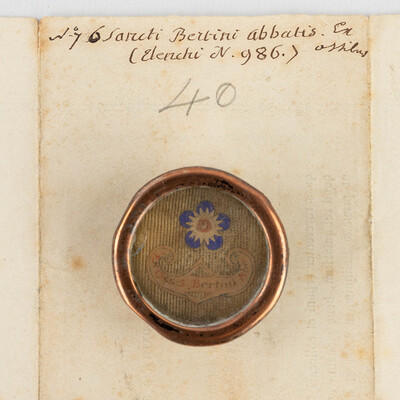 Nº 76 Sancti Bertini abbatis. Ex
(Elenchi N. 986.) ossibus
40
S. Bertini